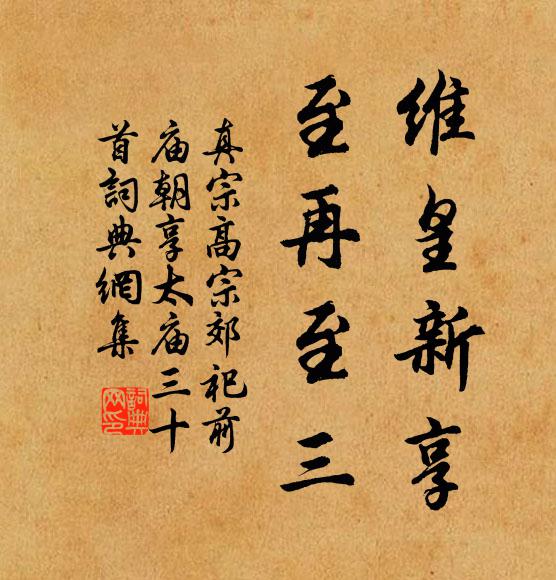 维皇新享
至再至三
真宗高宗郊祀前
庙朝享太庙三十
首词典网集
詞典网印